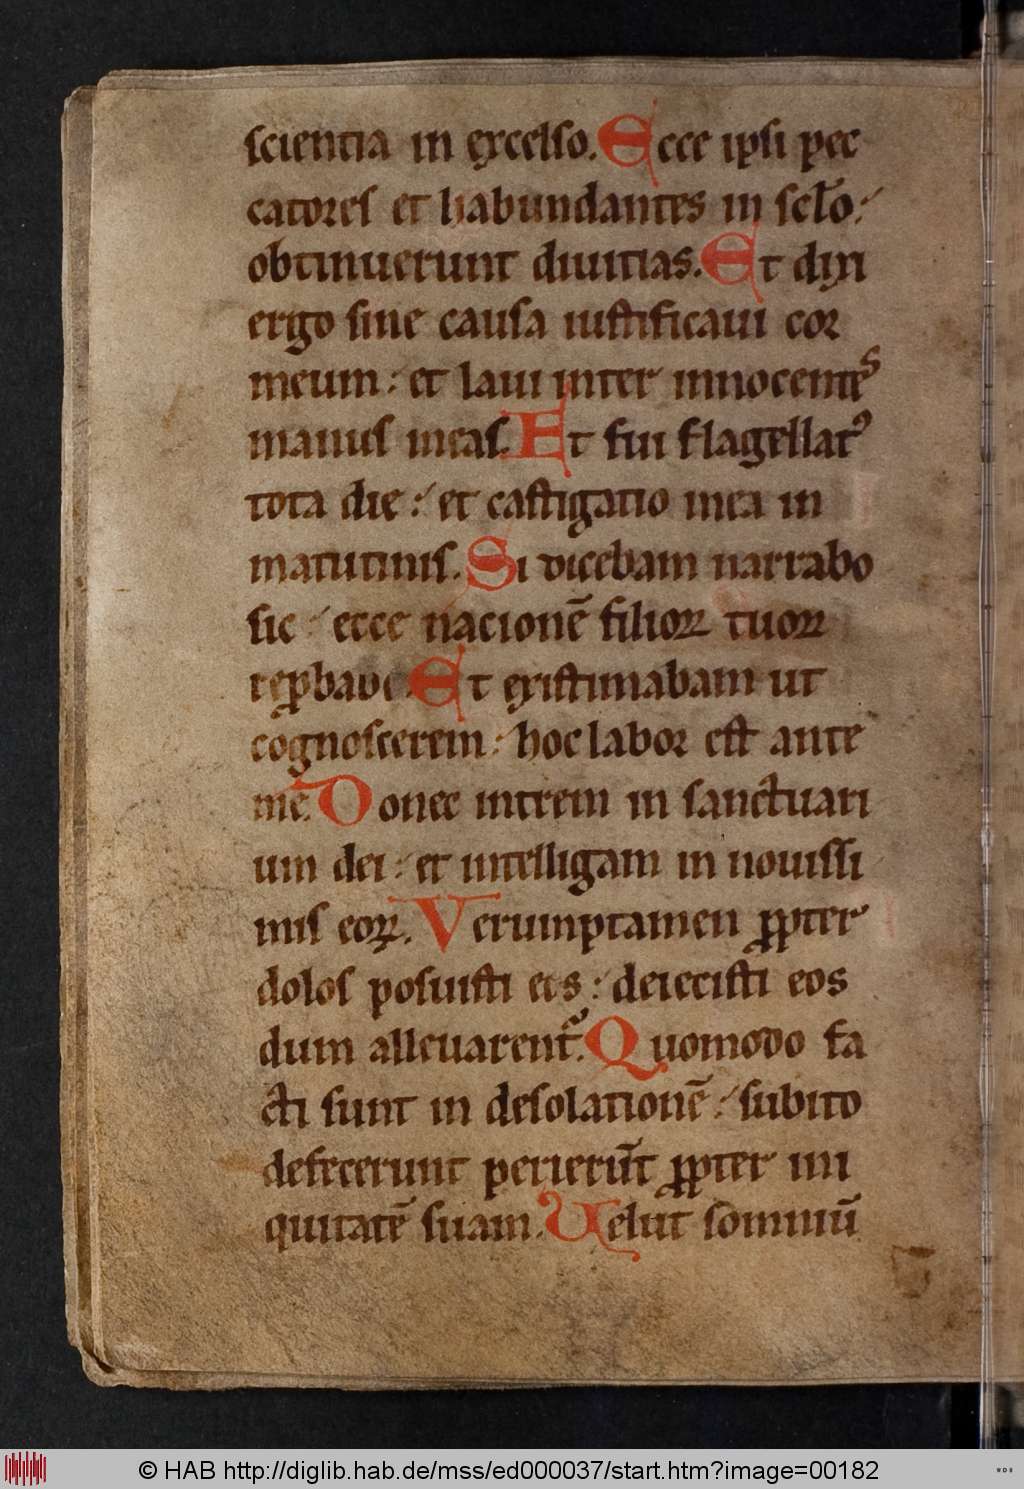 scientia in excelso. Ecce ipsi pec
catores et habundantes in sclo:
obtinuerunt diuitias. Et dixi
ergo sine causa iustificaui cor
meum: et laui inter innocentes
manus meas. Et fui flagellatꝰ
tota die: et castigatio mea in
matutinis. Si dicebam narrabo
sic: ecce nacionē filioꝝ tuoꝝ
reꝓbaui. Et existimabam ut
cognoscerem: hoc labor est ante
me. Donec intrem in sanctuari
um dei: et intelligam in nouissi
mis eoꝝ. Verumptamen ꝓpter
dolos posuisti eis: deiecisti eos
dum alleuarent᷑. Quomodo fa
cti sunt in desolationē: subito
defecerunt perierūt ꝓpter ini
quitatē suam. Uelut somniū
© HAB http://diglib.hab.de/mss/ed000037/start.htm?image=00182